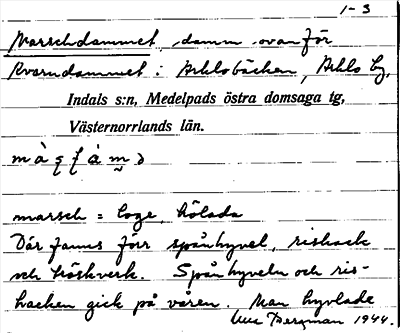 1-3
Marschdammet, damm ovanför
Kvarndammet i Arklobäcken, Arklo by,
Indals s:n, Medelpads östra domsaga tg,
Västernorrlands län.
marsch = loge, hölada
Där fanns förr spånhyvel, rishack
och tröskverk. Spånhyveln och ris-
hacken gick på våren. Man hyvlade
Bergman 1944.